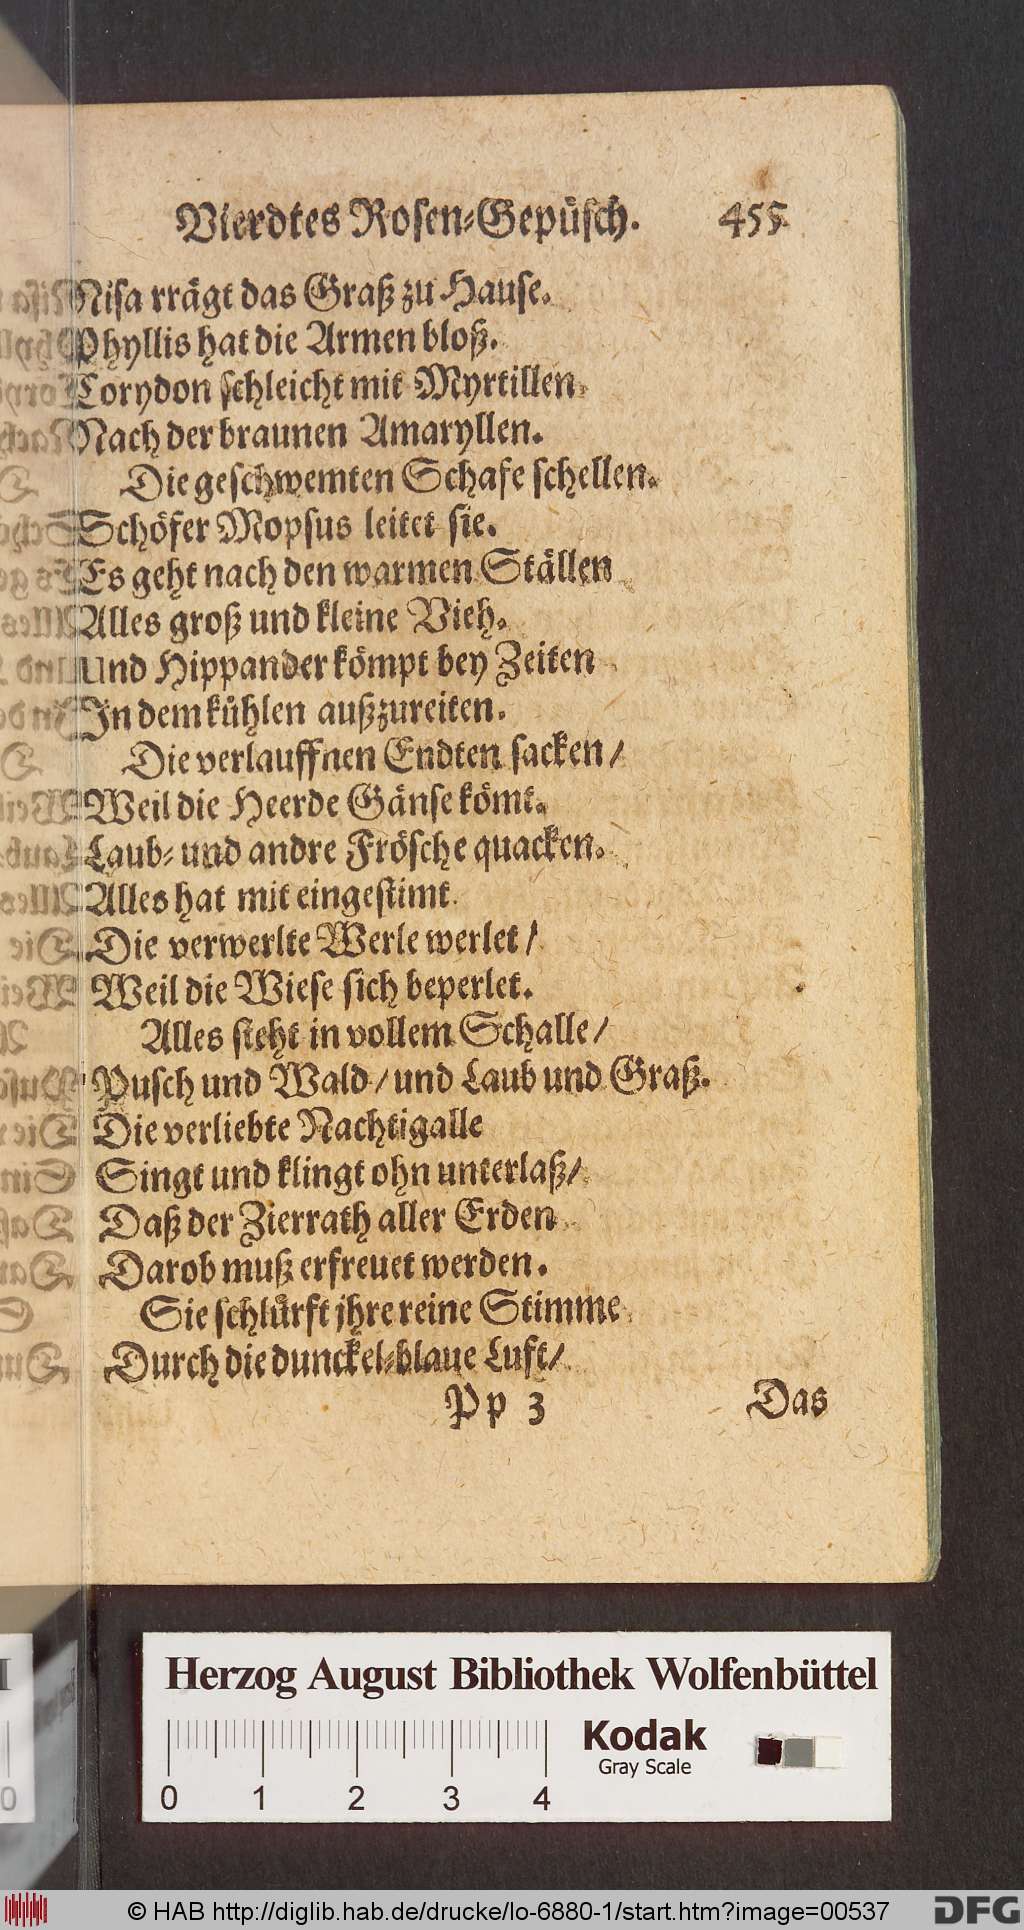 Vierdtes Rosen-Gepüsch. 455
Nisa rrägt das Graß zu Hause.
Phyllis hat die Armen bloß.
Corydon schleicht mit Myrtillen
Nach der braunen Amaryllen.
Die geschwemten Schafe schellen.
Schöfer Mopsus leitet sie.
Es geht nach den warmen Ställen
Alles groß und kleine Vieh.
Und Hippander kömpt bey Zeiten
In dem kühlen außzureiten.
Die verlauffnen Endten sacken/
Weil die Heerde Gänse kömt.
Laub- und andre Frösche quacken.
Alles hat mit eingestimt.
Die verwerlte Werle werlet/
Weil die Wiese sich beperlet.
Alles steht in vollem Schalle/
Pusch und Wald/ und Laub und Graß.
Die verliebte Nachtigalle
Singt und klingt ohn unterlaß/
Daß der Zierrath aller Erden
Darob muß erfreuet werden.
Sie schlürft jhre reine Stimme
Durch die dunckel-blaue Luft/
Pp 3 Das
Herzog August Bibliothek Wolfenbüttel
Kodak
Gray Scale
0 1 2 3 4
© HAB http://diglib.hab.de/drucke/lo-6880-1/start.htm?image=00537
DFG